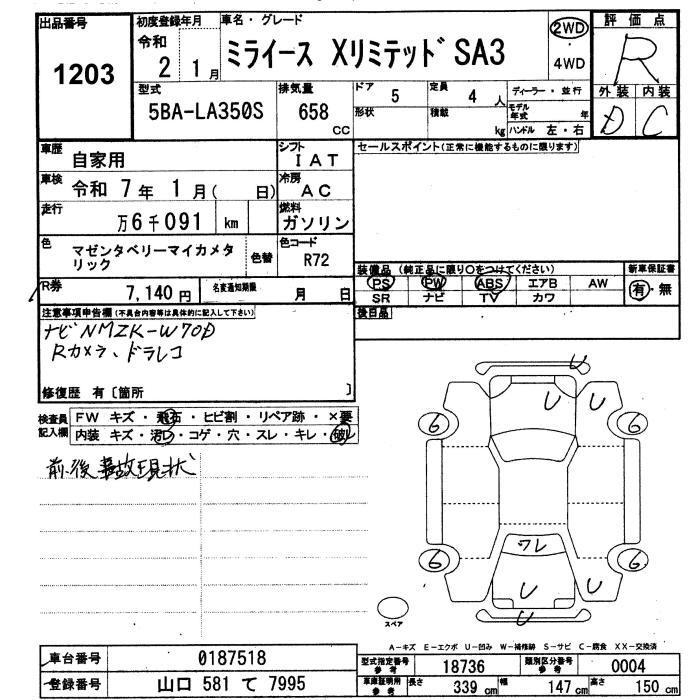 出品番号 初度登録年月 車名・グレード 評価点
1203 令和 2 1月 ミライース XリミテッドSA3 2WD 4WD R
型式 排気量 ドア 定員 ディーラー・並行 外装 内装
5BA-LA350S 658 CC 5 4 人 D C
形状 積載 kg モデル年式 年
ハンドル 左・右
車歴 自家用 シフト IAT セールスポイント(正常に機能するものに限ります)
車検 令和 7年 1月( 日) 冷房 AC
走行 万6千091 km 燃料 ガソリン
色 マゼンタベリーマイカメタリック 色替 色コード R72
装備品 (純正品に限り○をつけてください) 新車保証書
R券 7,140円 名変通知期限 月 日
PS PW ABS エアB AW 有・無
SR ナビ TV カワ
注意事項申告欄(不具合内容等は具体的に記入して下さい) 後日品
ナビNMZK-W70D
Rカメラ、ドラレコ
修復歴 有〔箇所 〕
検査員記入欄 FW キズ・飛石・ヒビ割・リペア跡・×要
内装 キズ・汚レ・コゲ・穴・スレ・キレ・破レ
前後事故現状
U
U U
6 6
ワレ
6 6
U U
U
スペア
A-キズ E-エクボ U-凹み W-補修跡 S-サビ C-腐食 XX-交換済
車台番号 0187518 型式指定番号参考 18736 類別区分番号参考 0004
登録番号 山口 581 て 7995 車庫証明用参考 長さ 339 cm 幅 147 cm 高さ 150 cm